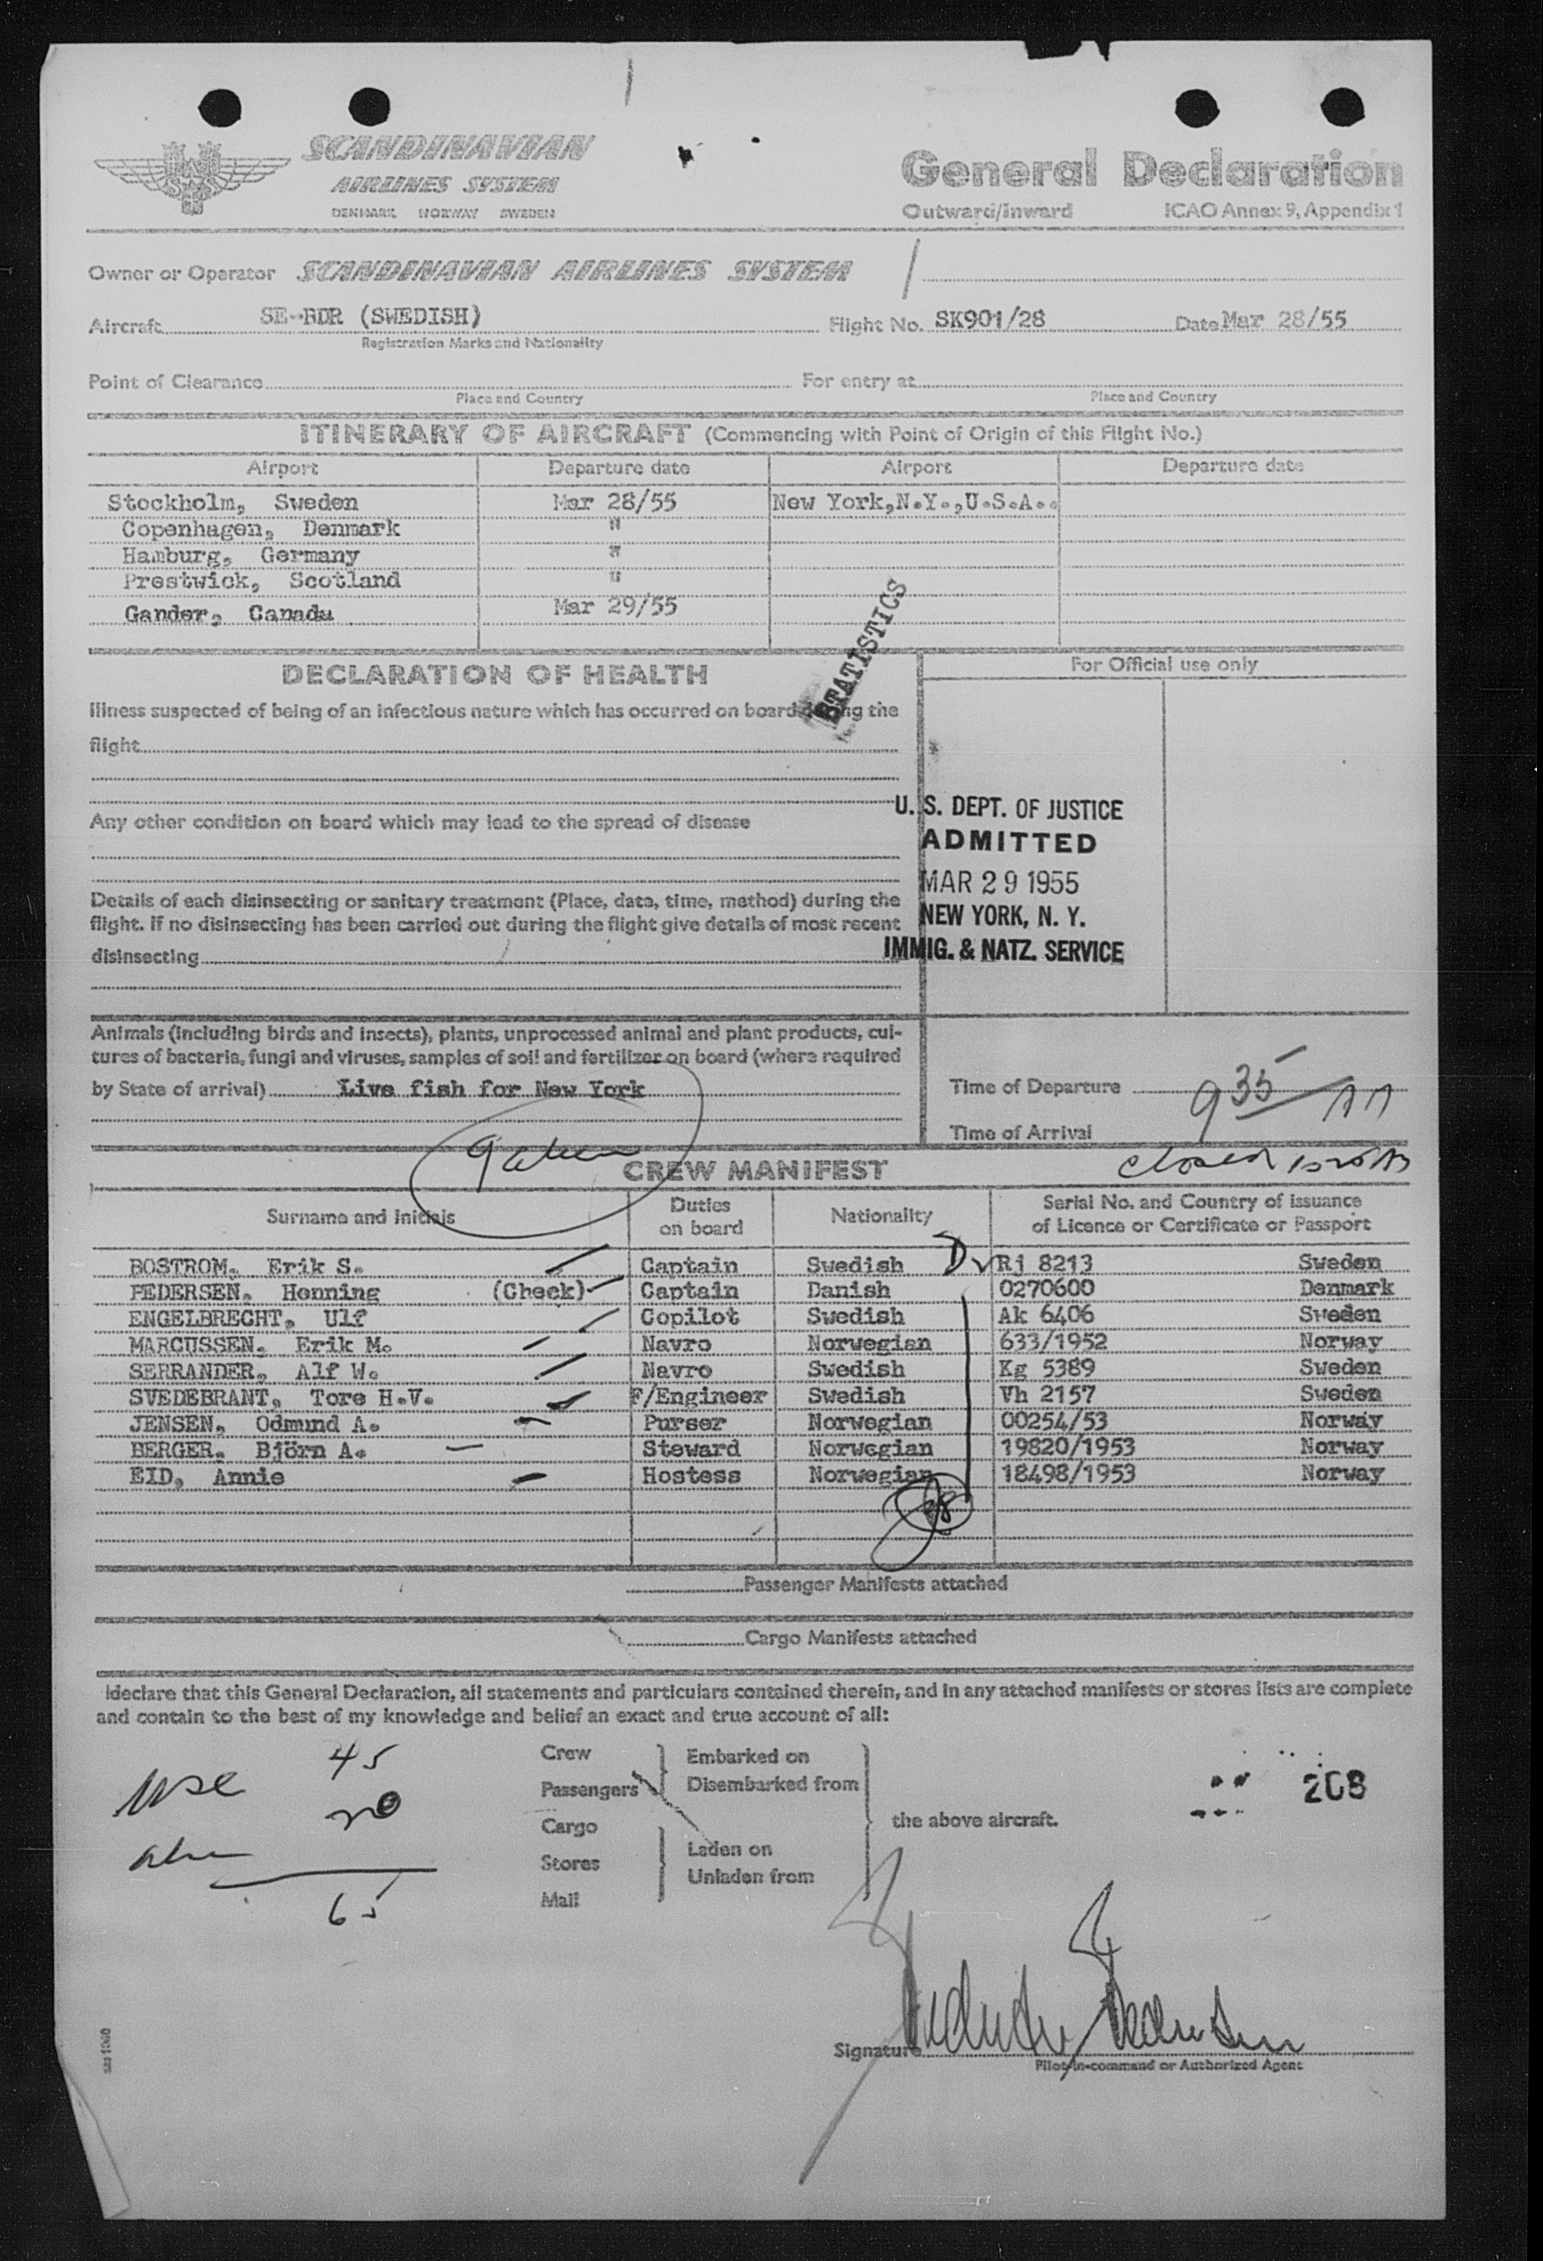 SCANDINAVIAN
AIRLINES SYSTEM
DENMARK NORWAY SWEDEN
General Declaration
Outward/Inward ICAO Annex 9, Appendix 1
Owner or Operator SCANDINAVIAN AIRLINES SYSTEM
Aircraft SE-BDR (SWEDISH) Flight No. SK901/28 Date Mar 28/55
Registration Marks and Nationality
Point of Clearance For entry at
Place and Country Place and Country
ITINERARY OF AIRCRAFT (Commencing with Point of Origin of this Flight No.)
Airport Departure date Airport Departure date
Stockholm, Sweden Mar 28/55 New York,N.Y.,U.S.A..
Copenhagen, Denmark "
Hamburg, Germany "
Prestwick, Scotland "
Gander, Canada Mar 29/55
STATISTICS
DECLARATION OF HEALTH For Official use only
Illness suspected of being of an infectious nature which has occurred on board during the
flight
Any other condition on board which may lead to the spread of disease
U. S. DEPT. OF JUSTICE
ADMITTED
MAR 29 1955
NEW YORK, N. Y.
IMMIG. & NATZ. SERVICE
Details of each disinsecting or sanitary treatment (Place, date, time, method) during the
flight. If no disinsecting has been carried out during the flight give details of most recent
disinsecting
Animals (including birds and insects), plants, unprocessed animal and plant products, cul-
tures of bacteria, fungi and viruses, samples of soil and fertilizer on board (where required
by State of arrival) Live fish for New York
Time of Departure 935
Time of Arrival
closed
CREW MANIFEST
Surname and Initials Duties on board Nationality Serial No. and Country of issuance of Licence or Certificate or Passport
BOSTROM. Erik S. Captain Swedish D Rj 8213 Sweden
PEDERSEN. Henning (Check) Captain Danish 0270600 Denmark
ENGELBRECHT, Ulf Copilot Swedish Ak 6406 Sweden
MARCUSSEN. Erik M. Navro Norwegian 633/1952 Norway
SERRANDER, Alf W. Navro Swedish Kg 5389 Sweden
SVEDEBRANT, Tore H.V. F/Engineer Swedish Vh 2157 Sweden
JENSEN, Odmund A. Purser Norwegian 00254/53 Norway
BERGER. Björn A. Steward Norwegian 19820/1953 Norway
EID, Annie Hostess Norwegian 18498/1953 Norway
Passenger Manifests attached
Cargo Manifests attached
I declare that this General Declaration, all statements and particulars contained therein, and in any attached manifests or stores lists are complete
and contain to the best of my knowledge and belief an exact and true account of all:
USC 45
20
65
Crew
Passengers
Embarked on
Disembarked from
Cargo
Stores
Mail
Laden on
Unladen from
the above aircraft.
208
Signature
Pilot-in-command or Authorized Agent